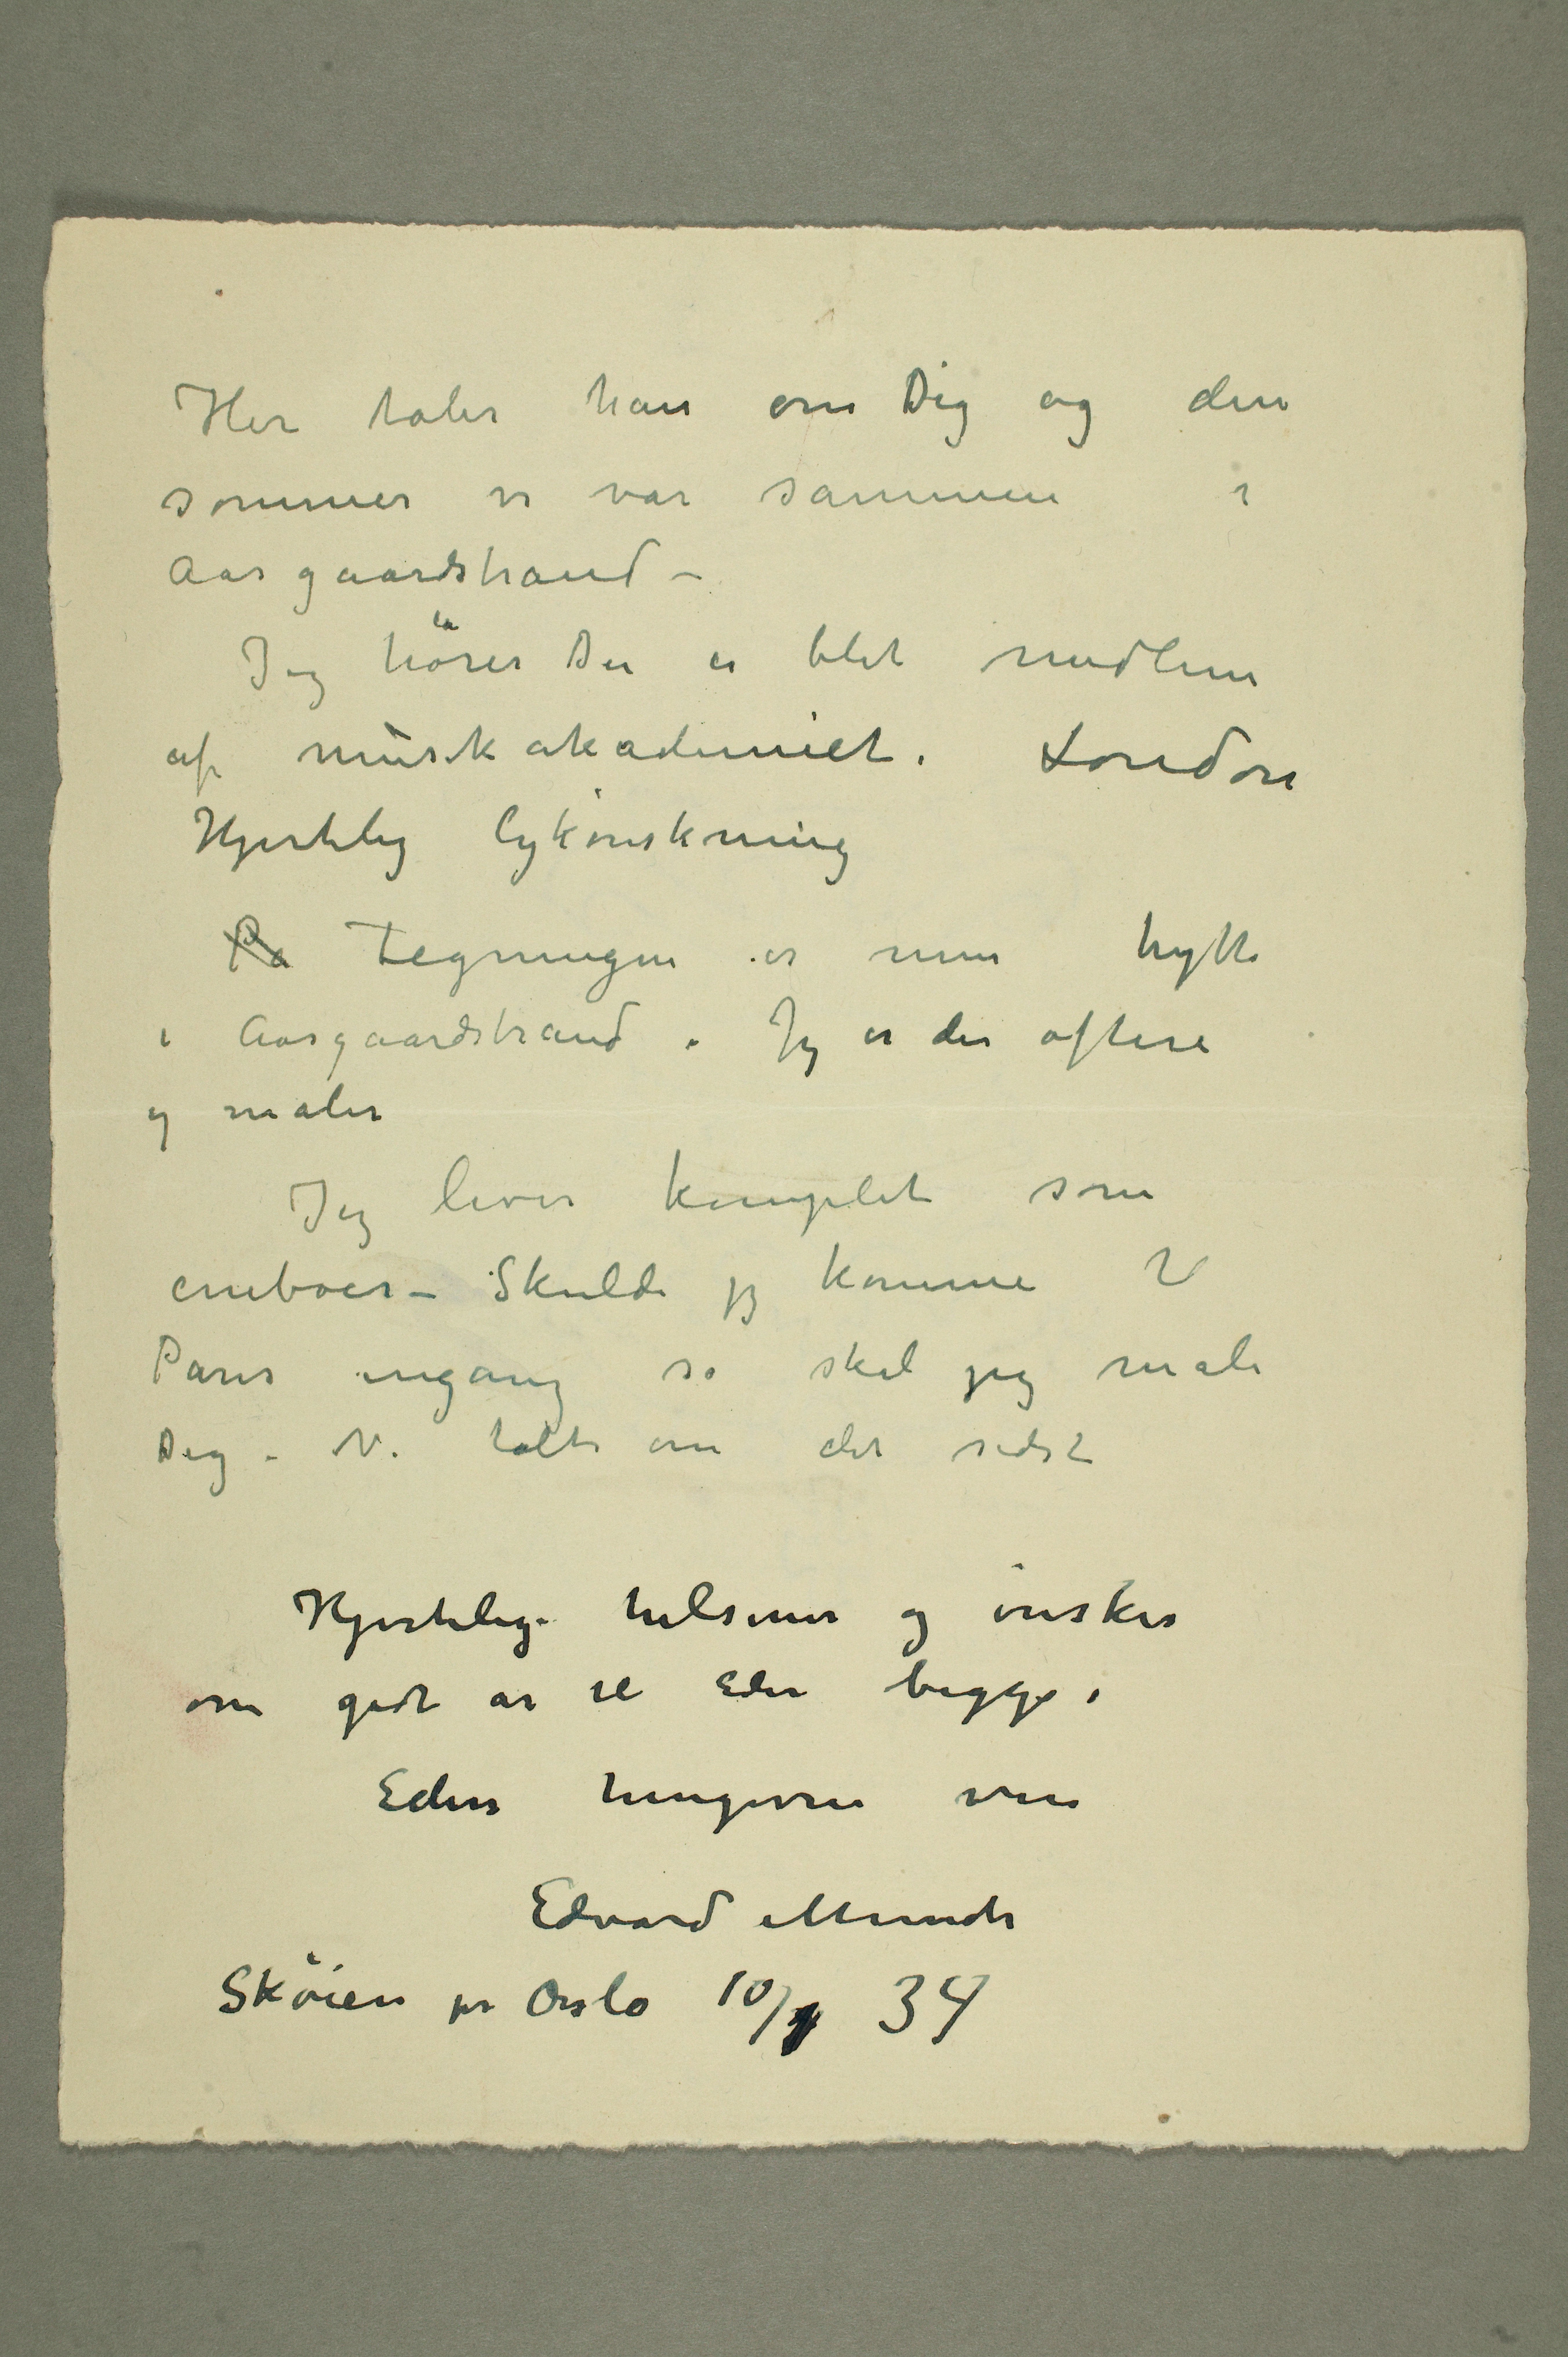 Her taler han om Dig og den
sommer vi var sammen i
Aasgaardstrand –
Jeg hörer Du er blet medlem
af musikakademiet. London
Hjertelig lykönskning
På Tegningen er min hytte
i Aasgaardstrand. Jeg er der oftere
og maler
Jeg lever komplet som
eneboer – Skulde jeg komme til
Paris engang så skal jeg male
Dig – Vi talte om det sidst
Hjertelige hilsener og önsker
om godt år til Eder begge.
Eders hengivne ven
Edvard Munch
Sköien pr Oslo 10/1 34